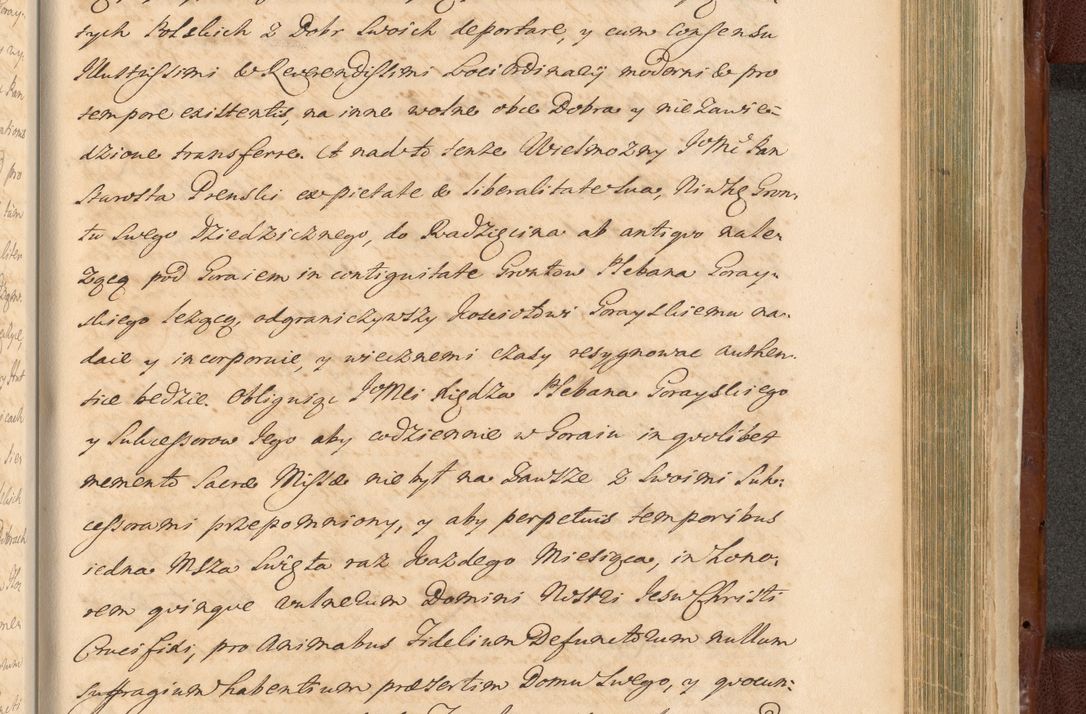 tych Polskich z Dobr swoich deportare, y cum Consensu
Illustrissimi & Reverendissimi Loci Ordinarÿ moderni & pro
tempore existentis, na inne wolne obce Dobra y nie zawie-
dzione transferre. A nadto tenże Wielmozny JoMć Pan
Starosta Prenski ex pietate & liberalitate sua, Gron-
tu swego Dziedzicznego, do Radzięcina ab antiquo nale-
zącą pod Goraiem in contiguitate Grontow Plebana Goray-
skiego lezącą, odgraniczywszy Kosciołowi Gorayskiemu na-
daie y incorporuie, y wiecznemi czasy resygnowac authen-
tice będzie. Obliguiąc JoMci Xiędza Plebana Gorayskiego
y Sukcessorow Jego aby codziennie w Goraiu in quolibet
memento Sacræ Missæ nie był na zawsze z swoimi Suk-
cessorami przepomniony, y aby perpetuis temporibus
iedna Msza Swięta raz Kazdego Miesiąca, in hono-
rem quinque vulnerum Domini Nostri Jesu Christi
Crucifixi, pro Animabus Fidelium Defunctorum nullum
suffragium habentium præsertim Domu swego, y quocun-